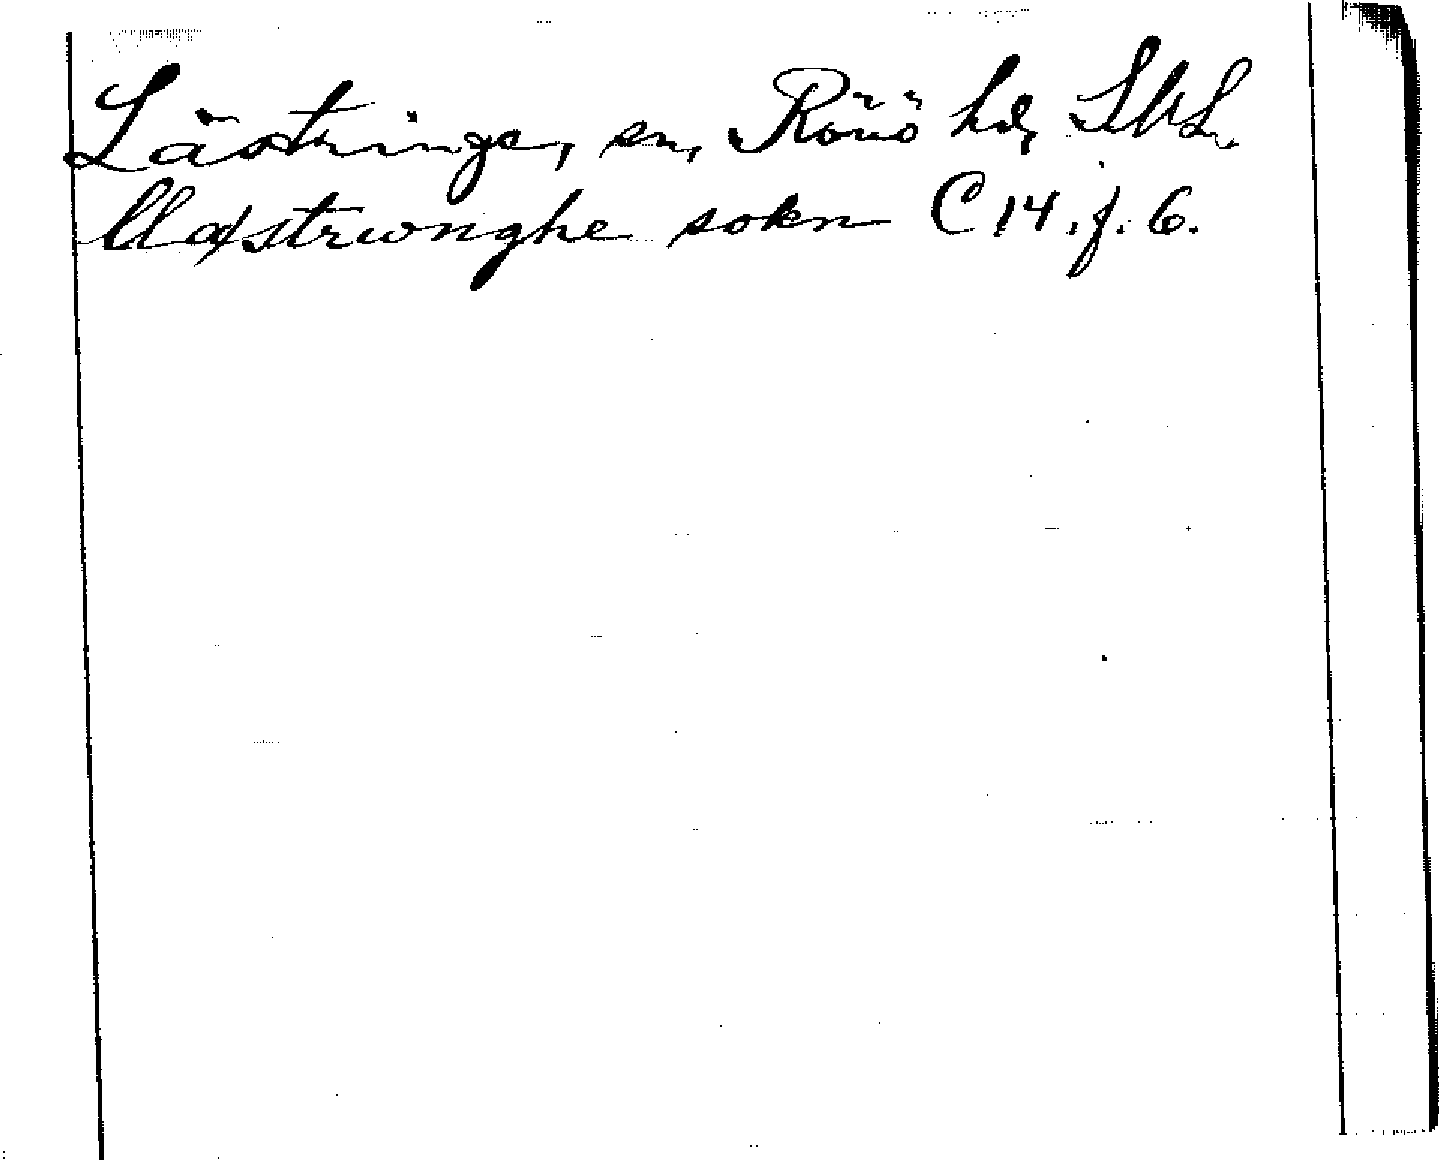 Lästringe, sn, Rönö hd, SML.
llæstrwnghe sokn C 14. f. 6.